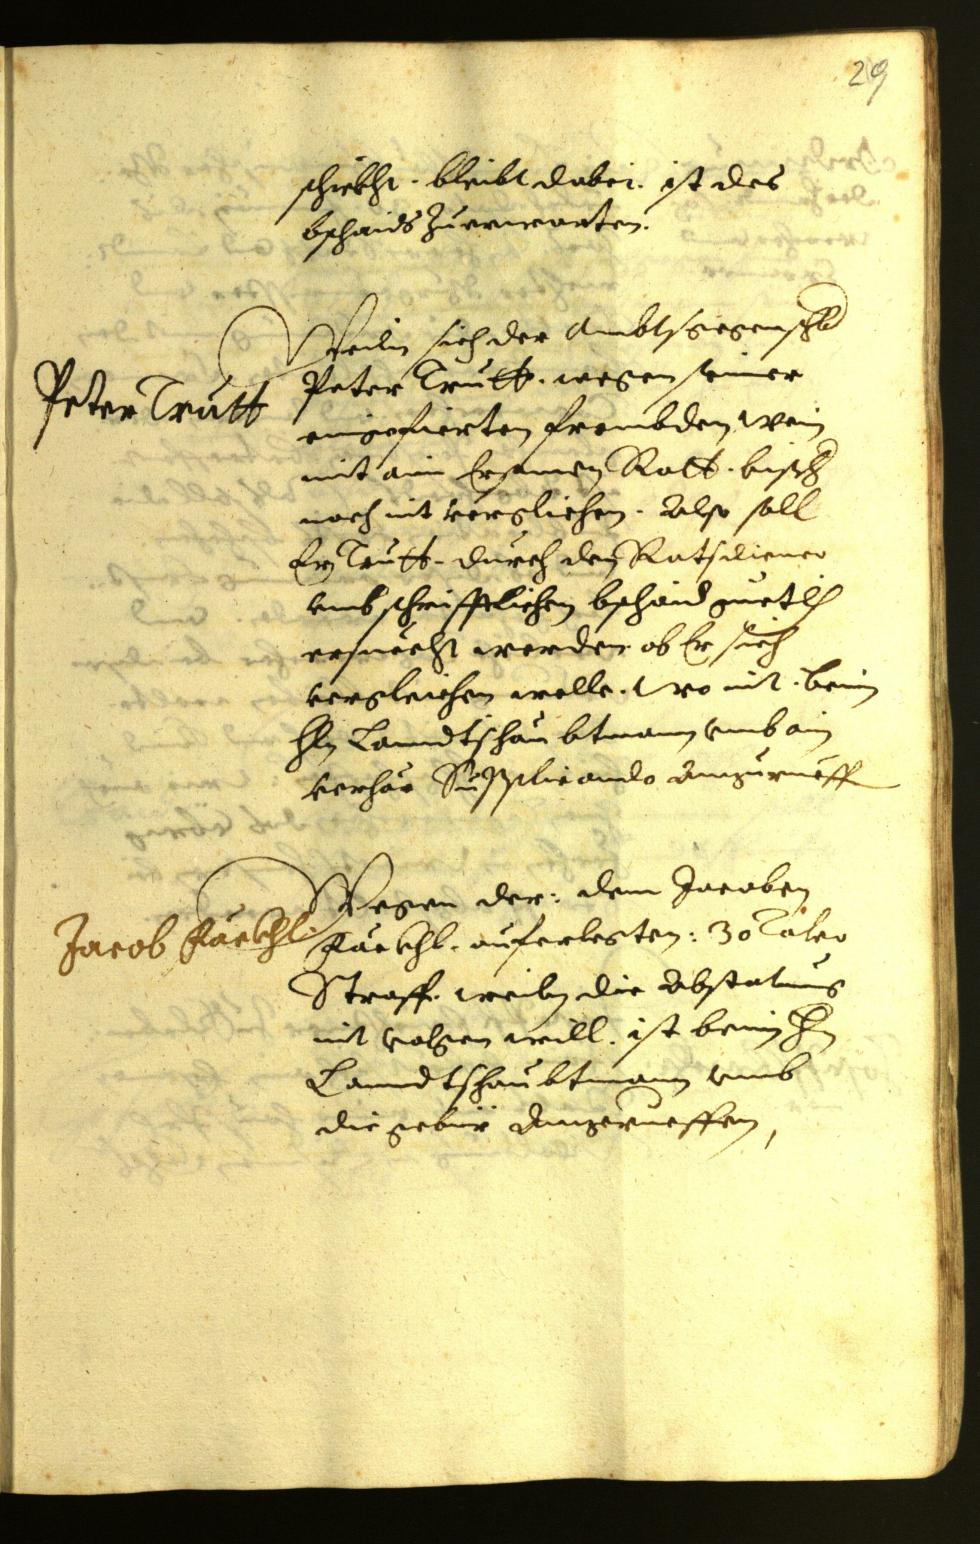 29
schickht. bleibt dabei. ist des
bschaids zuerwarten.
Peter Trutt
Weiln sich der Ambtsgegenschr
Peter Trutt. wegen seiner
eingefierten frembden wein
mit aim Ersamen Ratt. bishr
noch nit verglichen. Also soll
Er Trutt. durch den Ratsdiener
umb schrifftlichen bschaid guetlich
ersuecht werden. ob Er sich
vergleichen welle. wo nit. beim
Hln Lanndtshaubtmann umb ain
verhör Supplicando anzurueffen
Jacob
Wegen der: dem Jacoben
auferlegten: 30 Taler
Straff. weiln die Abstatung
nit volgen will. ist beim Hn
Lanndtshaubtmann umb
die gebür anzurueffen,